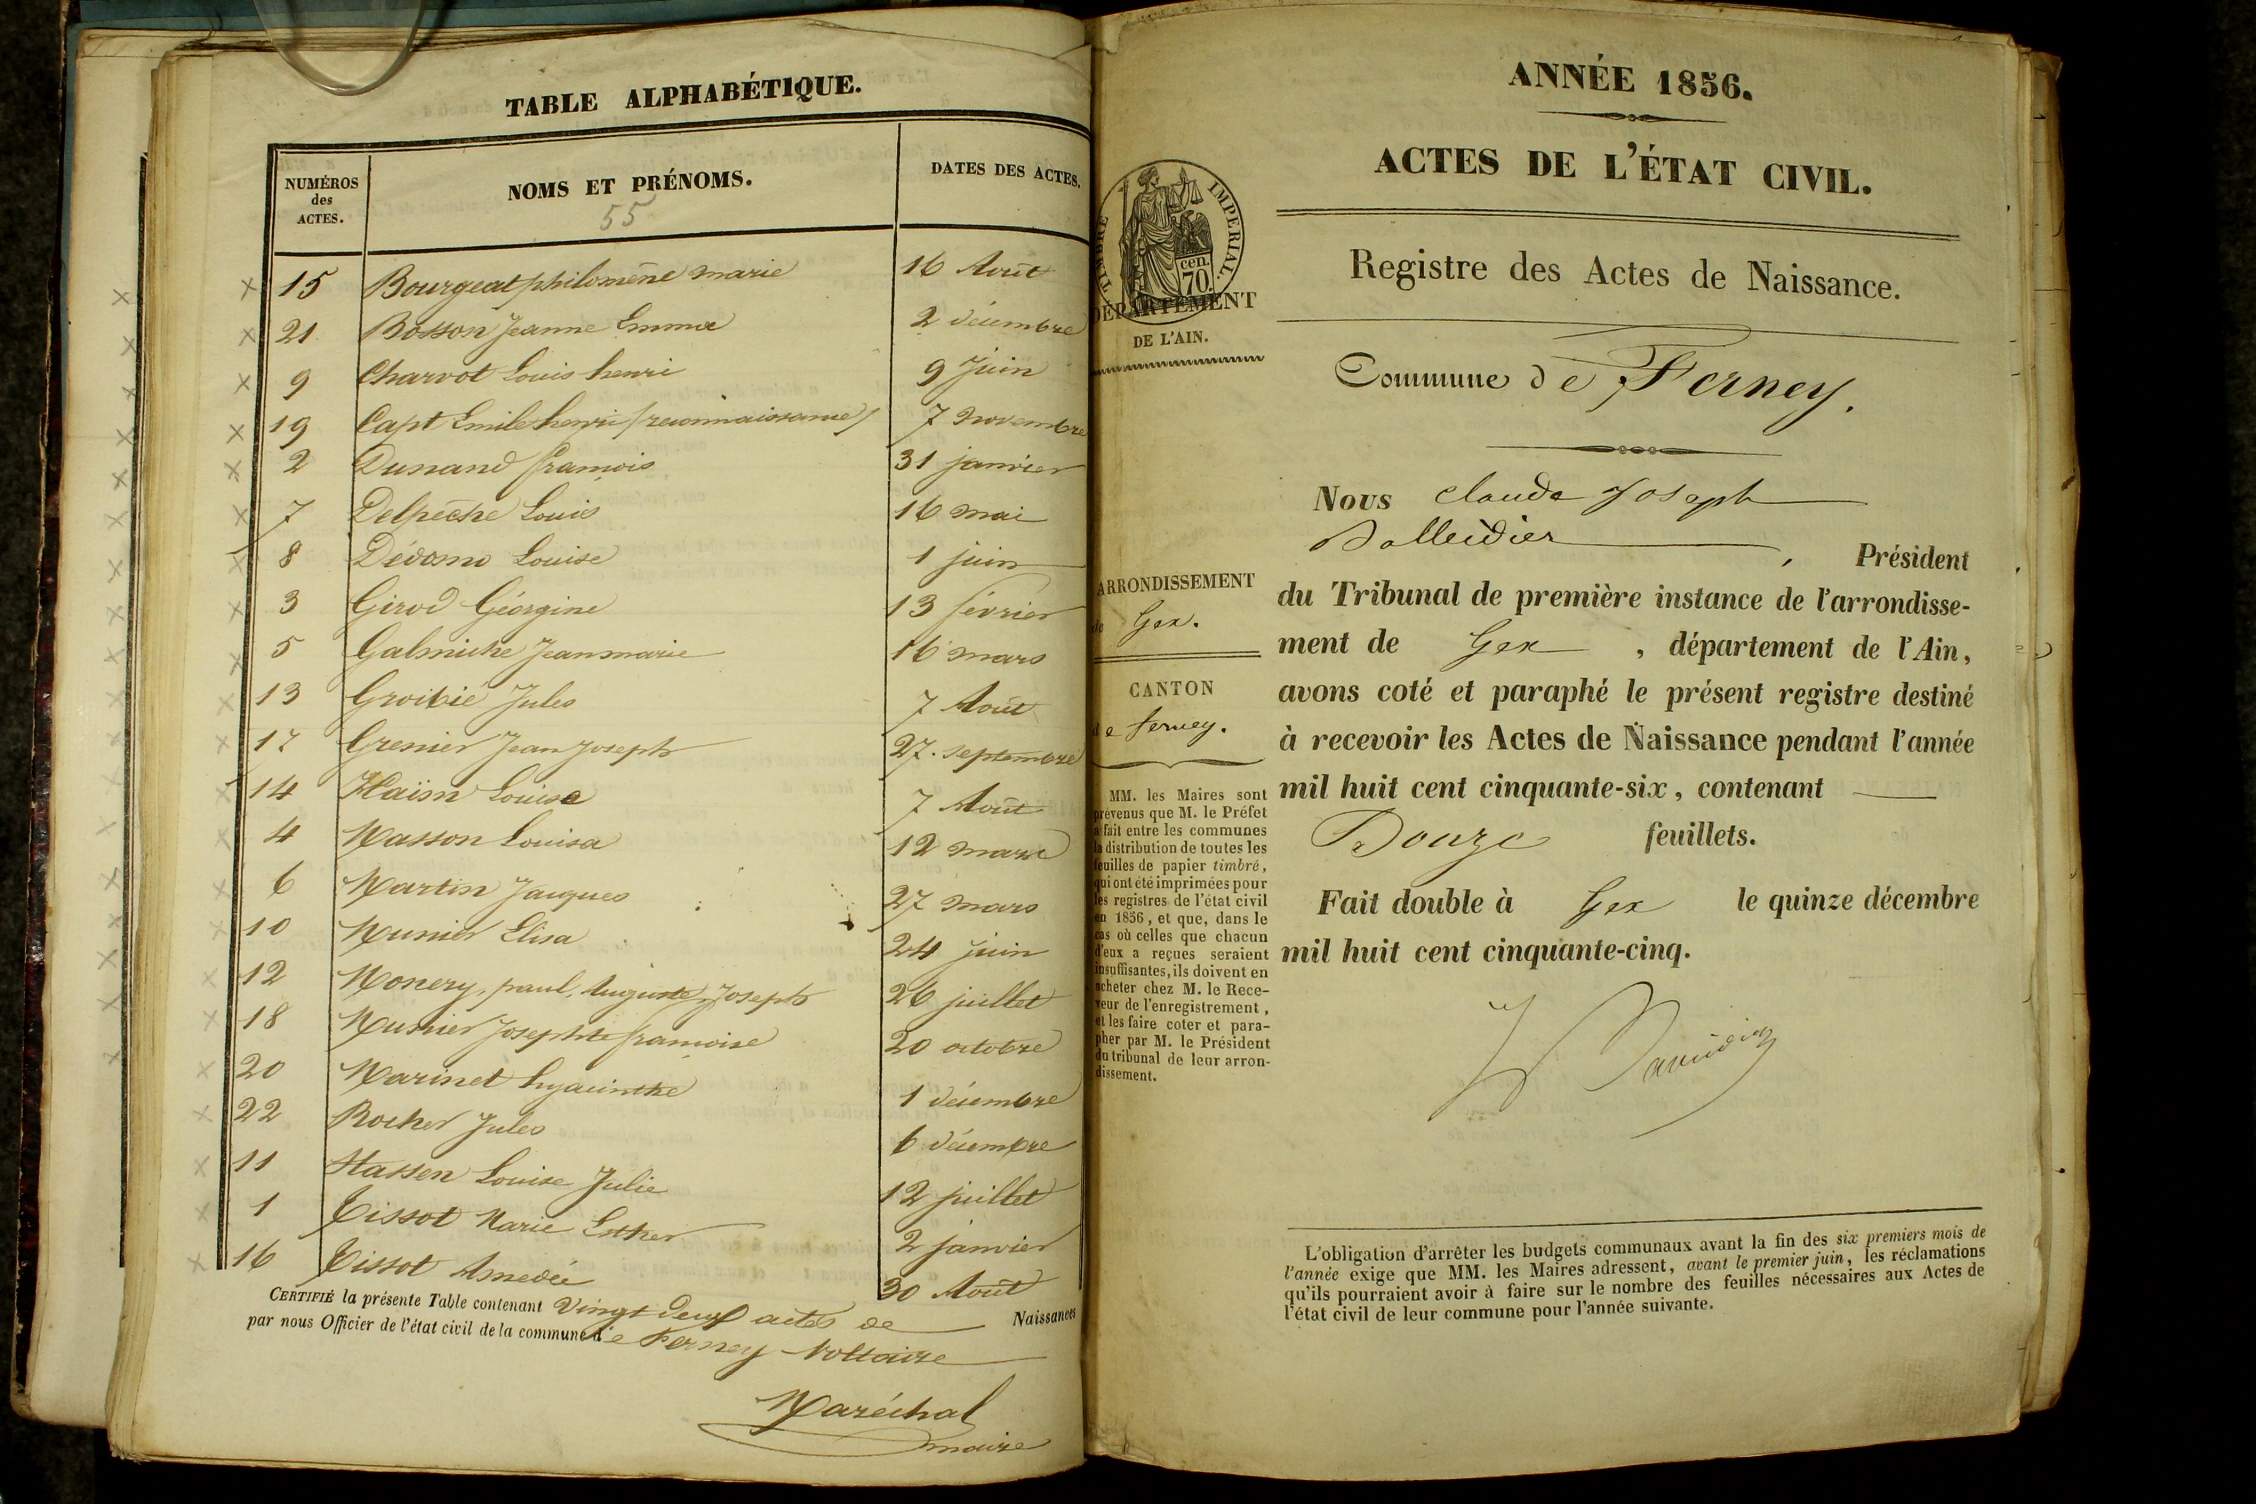 TABLE ALPHABÉTIQUE.
NUMÉROS des ACTES.
NOMS ET PRÉNOMS.
DATES DES ACTES.
55
15 Bourgeat philomène marie 16 Août
21 Bosson Jeanne Emma 2 décembre
9 Charvot Louis henri 9 Juin
19 Capt Emile henri (reconnaissance) 7 novembre
2 Dunand françois 31 janvier
7 Delpèche Louis 16 mai
8 Louise 1 juin
3 Girod Géorgine 13 février
5 Galmiche Jean marie 16 mars
13 Jules 7 Août
17 Grenier Jean Joseph 27. septembre
14 Haïm Louise 7 Août
4 Masson Louisa 12 mars
6 Martin Jacques 27 mars
10 Munier Elisa 24 juin
12 Monery, paul, Auguste, Joseph 26 juillet
18 Munier Josephte françoise 20 octobre
20 Marinet hyacinthe 1 décembre
22 Rocher Jules 6 décembre
11 Stassen Louise Julie 12 juillet
1 Tissot Marie Esther 2 janvier
16 Tissot Amedée 30 Août
CERTIFIÉ la présente Table contenant Vingt deux actes de Naissances
par nous Officier de l'état civil de la commune de Ferney Voltaire
Maréchal
maire
ANNÉE 1856.
ACTES DE L'ÉTAT CIVIL.
Registre des Actes de Naissance.
TIMBRE IMPERIAL.
cen.
70.
DÉPARTEMENT
DE L'AIN.
Commune de Ferney.
Nous Claude Joseph
Balleidier, Président
du Tribunal de première instance de l'arrondisse-
ment de Gex, département de l'Ain,
avons coté et paraphé le présent registre destiné
à recevoir les Actes de Naissance pendant l'année
mil huit cent cinquante-six, contenant
Douze feuillets.
Fait double à Gex le quinze décembre
mil huit cent cinquante-cinq.
ARRONDISSEMENT
de Gex.
CANTON
de ferney.
MM. les Maires sont
prévenus que M. le Préfet
a fait entre les communes
la distribution de toutes les
feuilles de papier timbré,
qui ont été imprimées pour
les registres de l'état civil
en 1856, et que, dans le
cas où celles que chacun
d'eux a reçues seraient
insuffisantes, ils doivent en
acheter chez M. le Rece-
veur de l'enregistrement,
et les faire coter et para-
pher par M. le Président
du tribunal de leur arron-
dissement.
L'obligation d'arrêter les budgets communaux avant la fin des six premiers mois de
l'année exige que MM. les Maires adressent, avant le premier juin, les réclamations
qu'ils pourraient avoir à faire sur le nombre des feuilles nécessaires aux Actes de
l'état civil de leur commune pour l'année suivante.